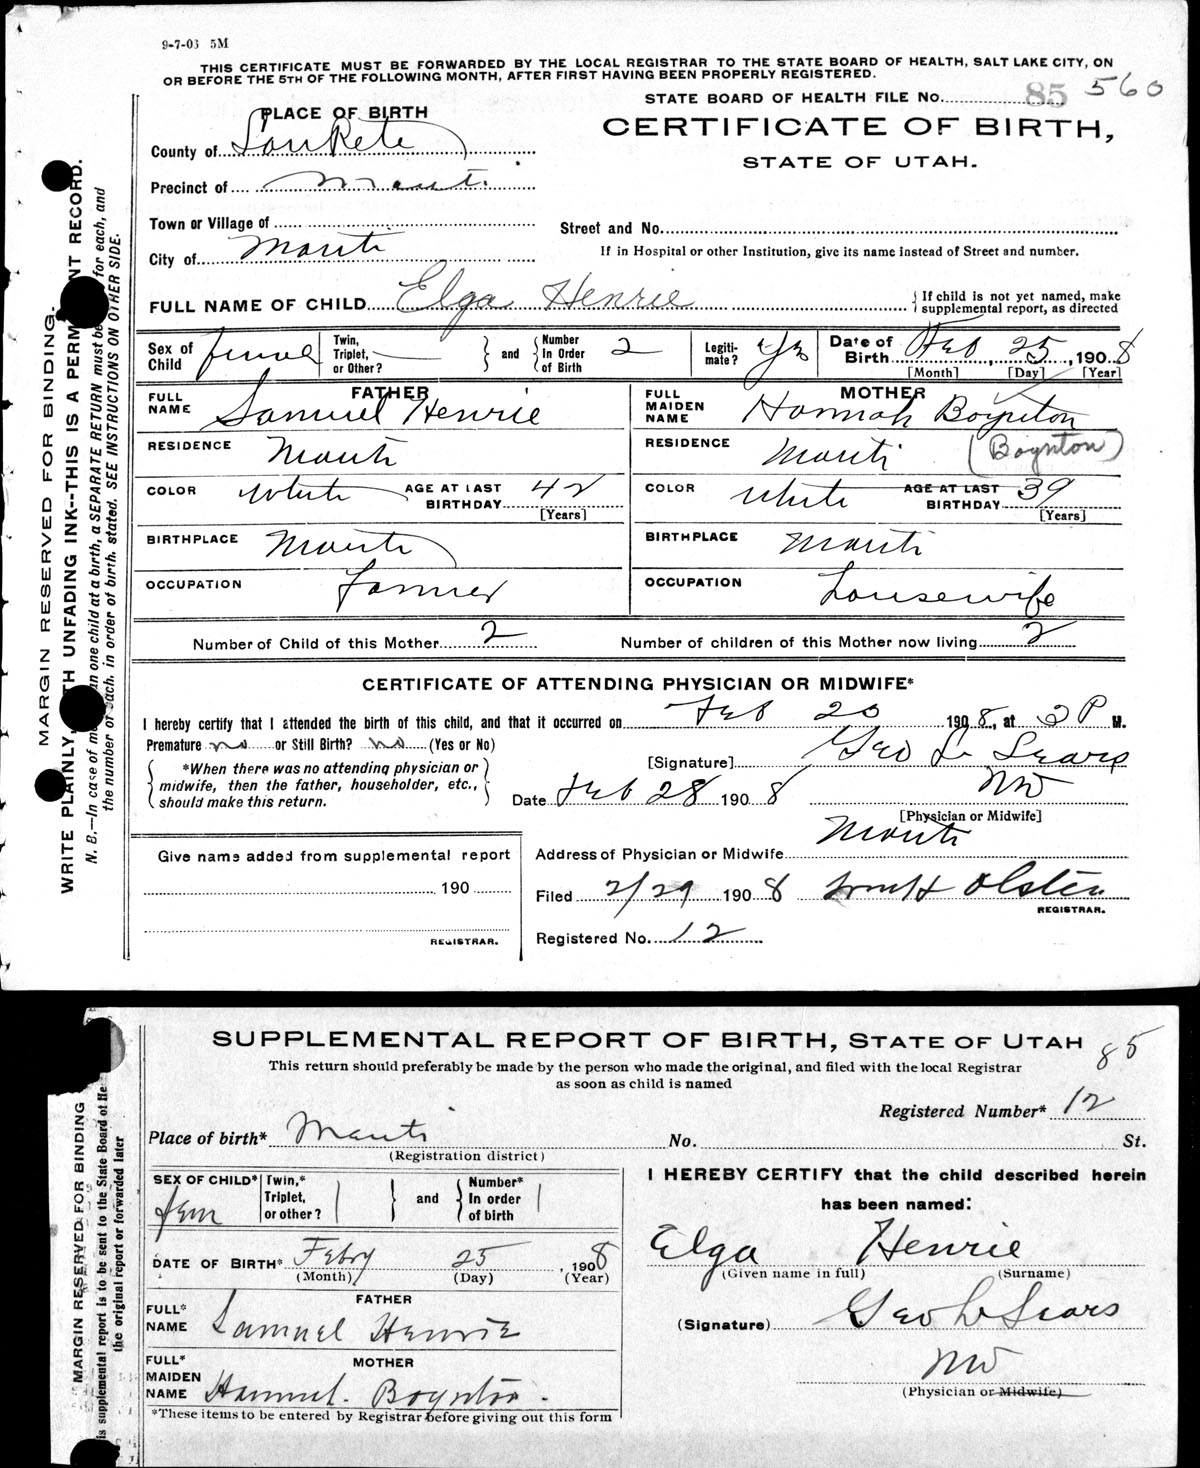 9-7-03 5M
THIS CERTIFICATE MUST BE FORWARDED BY THE LOCAL REGISTRAR TO THE STATE BOARD OF HEALTH, SALT LAKE CITY, ON
OR BEFORE THE 5TH OF THE FOLLOWING MONTH, AFTER FIRST HAVING BEEN PROPERLY REGISTERED.
STATE BOARD OF HEALTH FILE No. 85 560
PLACE OF BIRTH
CERTIFICATE OF BIRTH,
STATE OF UTAH.
County of SanPete
Precinct of Manti
Town or Village of
Street and No.
City of Manti
If in Hospital or other Institution, give its name instead of Street and number.
FULL NAME OF CHILD Elga Henrie
{ If child is not yet named, make
supplemental report, as directed
Sex of Child female
Twin, Triplet, or Other? —
and
Number In Order of Birth 2
Legitimate? Yes
Date of Birth Feb 25, 1908
[Month] [Day] [Year]
FATHER
FULL NAME Samuel Henrie
RESIDENCE Manti
COLOR White AGE AT LAST BIRTHDAY 42
[Years]
BIRTHPLACE Manti
OCCUPATION Farmer
MOTHER
FULL MAIDEN NAME Hannah Boynton
RESIDENCE Manti (Boynton)
COLOR White AGE AT LAST BIRTHDAY 39
[Years]
BIRTHPLACE Manti
OCCUPATION Housewife
Number of Child of this Mother 2 Number of children of this Mother now living 2
CERTIFICATE OF ATTENDING PHYSICIAN OR MIDWIFE*
I hereby certify that I attended the birth of this child, and that it occurred on Feb 25 1908, at 2 P M.
Premature no or Still Birth? no (Yes or No)
*When there was no attending physician or
midwife, then the father, householder, etc.,
should make this return.
[Signature] Geo L Sears
MD
Date Feb 28 1908
[Physician or Midwife]
Give name added from supplemental report
190
REGISTRAR.
Address of Physician or Midwife Manti
Filed 2/29 1908 Wm H Olsten
REGISTRAR.
Registered No. 12
MARGIN RESERVED FOR BINDING.
WRITE PLAINLY, WITH UNFADING INK--THIS IS A PERMANENT RECORD.
N. B.—In case of more than one child at a birth, a SEPARATE RETURN must be for each, and
the number of each, in order of birth, stated. SEE INSTRUCTIONS ON OTHER SIDE.
SUPPLEMENTAL REPORT OF BIRTH, STATE OF UTAH
85
This return should preferably be made by the person who made the original, and filed with the local Registrar
as soon as child is named
Registered Number* 12
Place of birth* Manti No. St.
(Registration district)
SEX OF CHILD* fem
Twin,* Triplet, or other?
and
Number* In order of birth
DATE OF BIRTH* Febry 25, 1908
(Month) (Day) (Year)
FATHER
FULL* NAME Samuel Henrie
MOTHER
FULL* MAIDEN NAME Hannah Boynton.
*These items to be entered by Registrar before giving out this form
I HEREBY CERTIFY that the child described herein
has been named:
Elga Henrie
(Given name in full) (Surname)
(Signature) Geo L Sears
MD
(Physician or Midwife)
MARGIN RESERVED FOR BINDING
is supplemental report is to be sent to the State Board of He
the original report or forwarded later